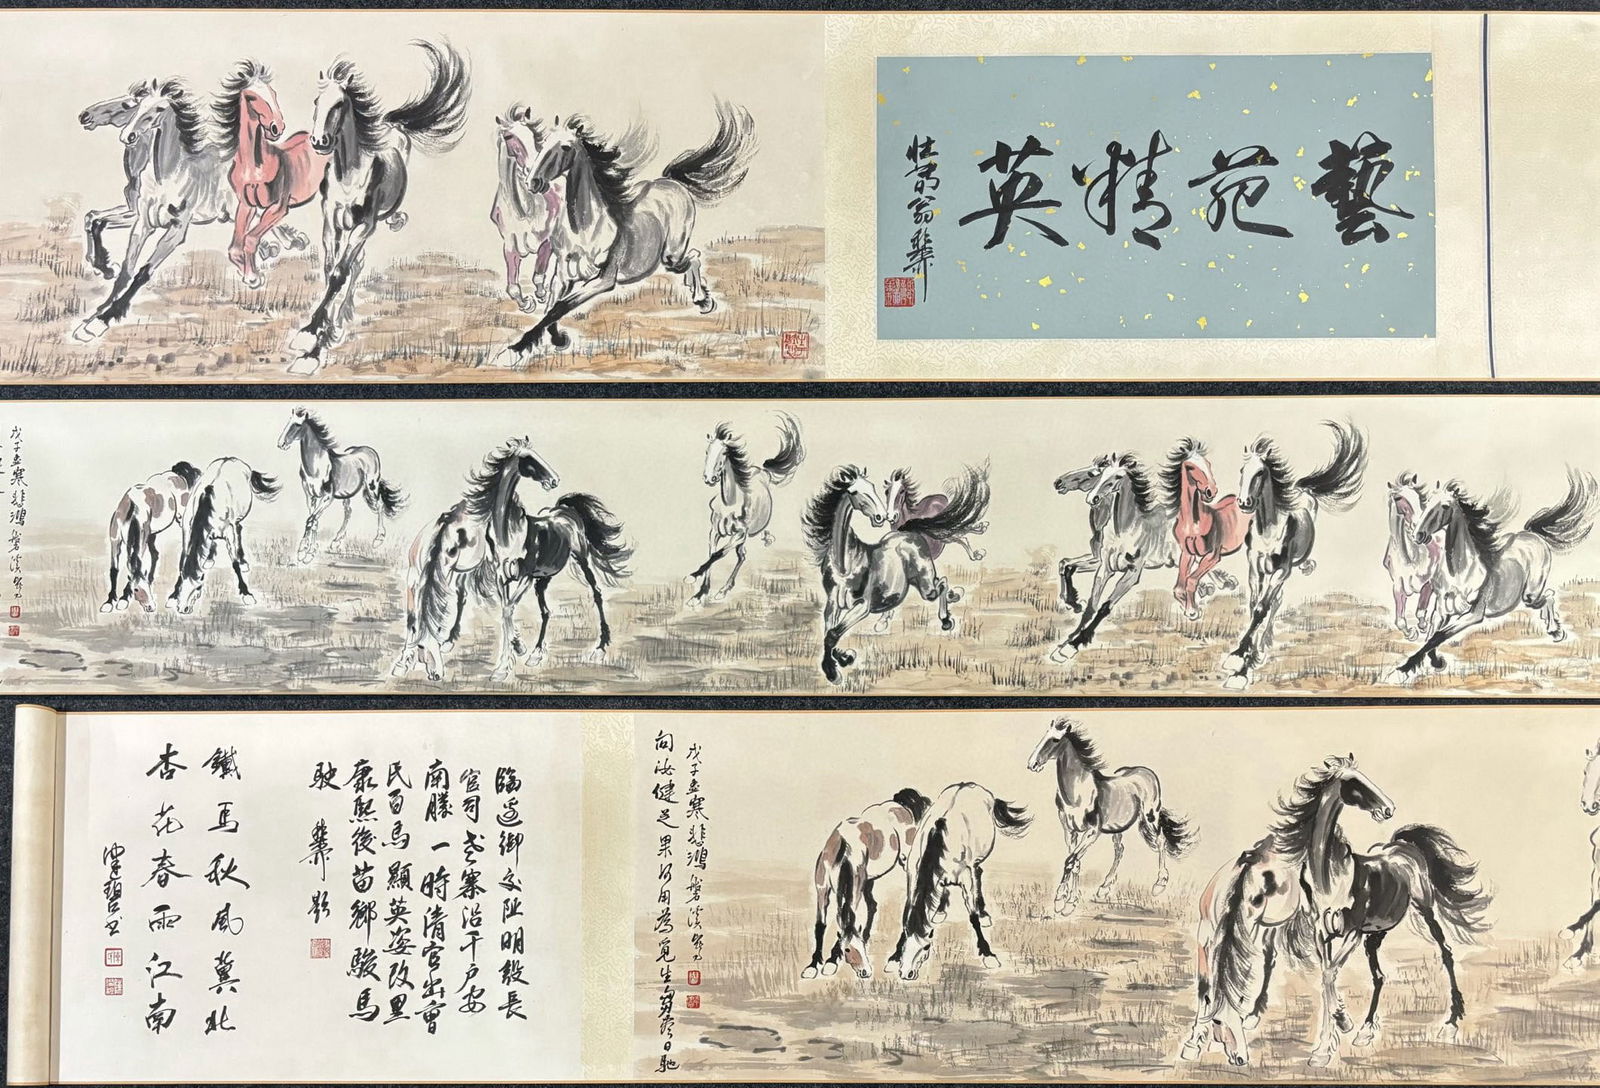 藝苑精英
戊子孟寒悲鴻磐溪
向汝健足果何用為覓生芻盡日馳
戊子孟寒悲鴻磐溪
臨邊御交阯明設長
官司老寨沿千戶安
南勝一時清官出會
民百馬顯英姿改里
康熙後苗鄉駿馬
駛
題
鐵馬秋風冀北
杏花春雨江南